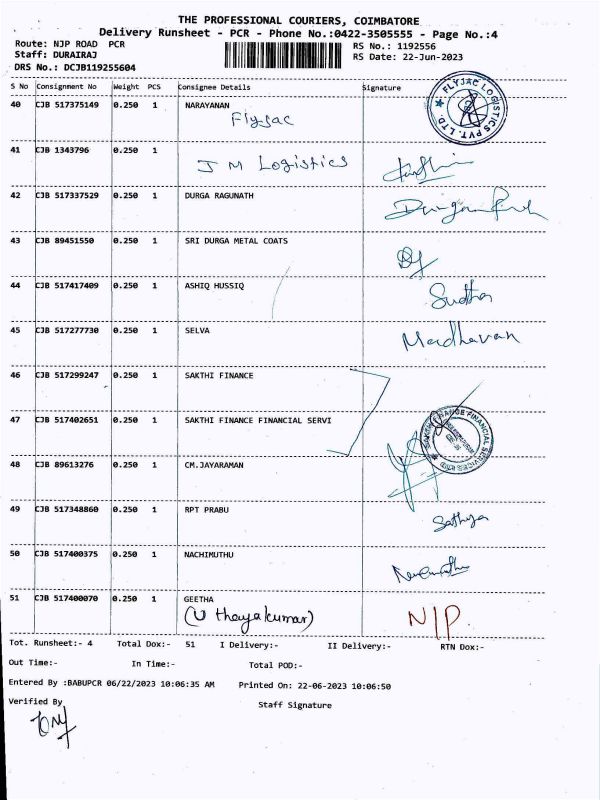 THE PROFESSIONAL COURIERS, COIMBATORE
Delivery Runsheet - PCR - Phone No.:0422-3505555 - Page No.:4
Route: NJP ROAD PCR RS No.: 1192556
Staff: DURAIRAJ RS Date: 22-Jun-2023
DRS No.: DCJB119255604
S No Consignment No Weight PCS Consignee Details Signature
40 CJB 517375149 0.250 1 NARAYANAN
Flyjac
FLYJAC LOGISTICS PVT. LTD.
41 CJB 1343796 0.250 1
J M Logistics
42 CJB 517337529 0.250 1 DURGA RAGUNATH
43 CJB 89451550 0.250 1 SRI DURGA METAL COATS
44 CJB 517417409 0.250 1 ASHIQ HUSSIQ
Sudha
45 CJB 517277730 0.250 1 SELVA
Madhavan
46 CJB 517299247 0.250 1 SAKTHI FINANCE
47 CJB 517402651 0.250 1 SAKTHI FINANCE FINANCIAL SERVI
SAKTHI FINANCE FINANCIAL SERVICES LTD
48 CJB 89613276 0.250 1 CM.JAYARAMAN
49 CJB 517348860 0.250 1 RPT PRABU
Sathya
50 CJB 517400375 0.250 1 NACHIMUTHU
51 CJB 517400070 0.250 1 GEETHA
(U thayakumar) N/P.
Tot. Runsheet:- 4 Total Dox:- 51 I Delivery:- II Delivery:- RTN Dox:-
Out Time:- In Time:- Total POD:-
Entered By :BABUPCR 06/22/2023 10:06:35 AM Printed On: 22-06-2023 10:06:50
Verified By Staff Signature